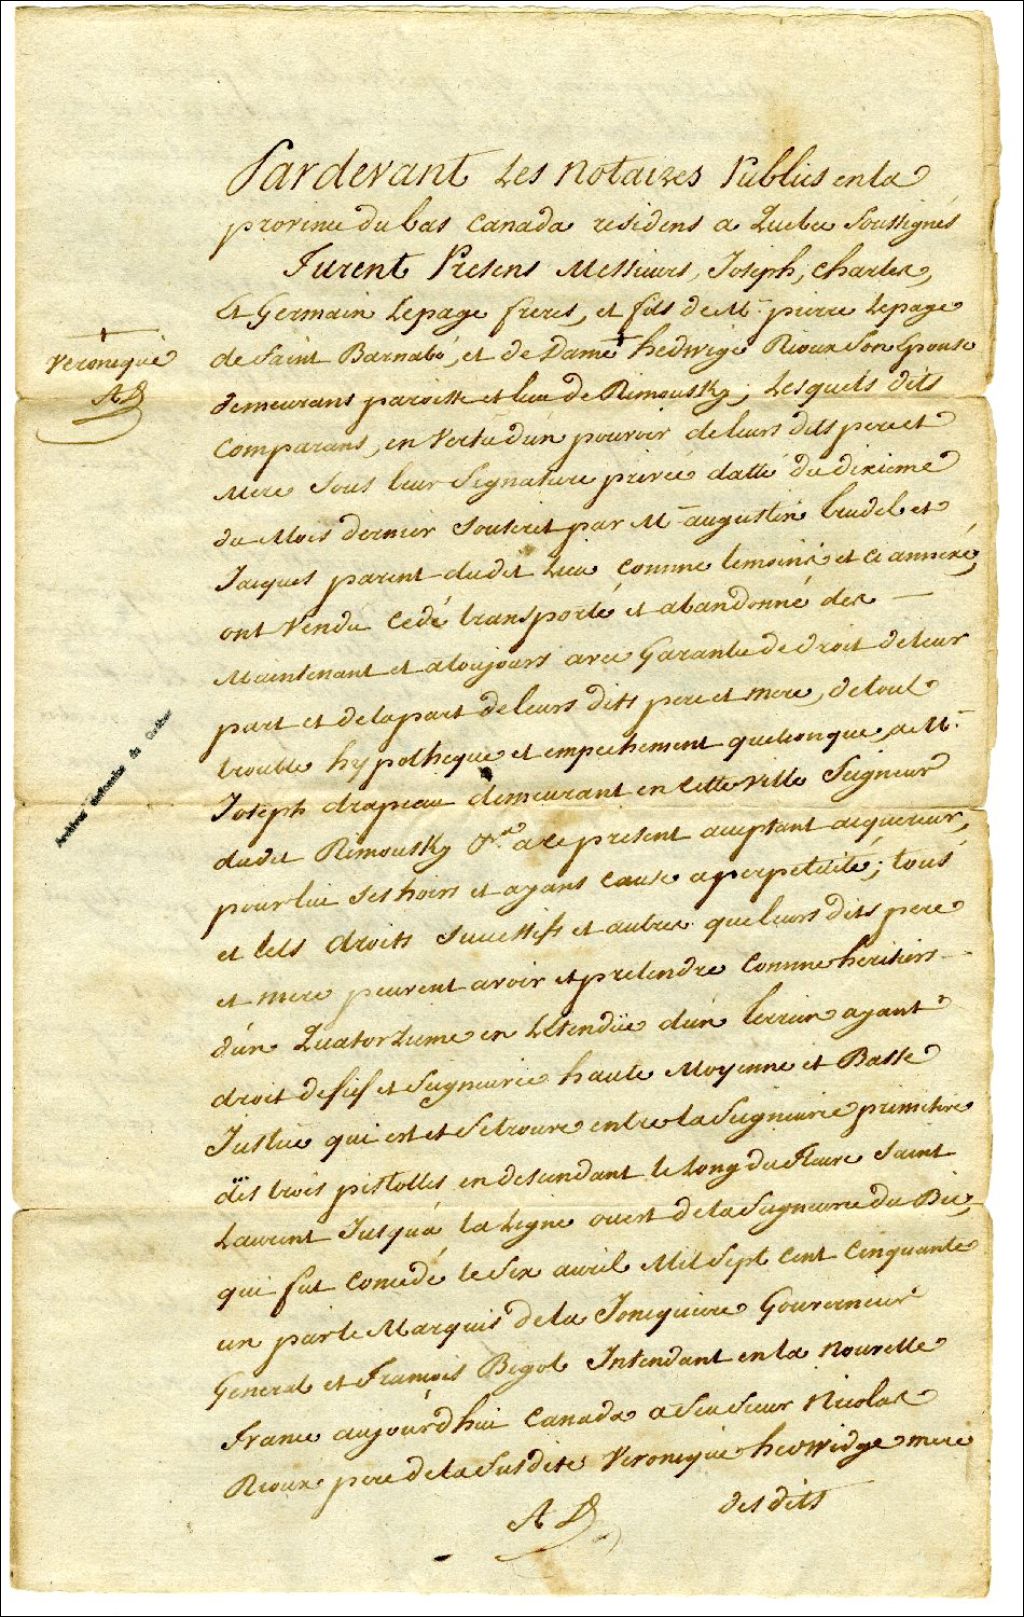 Pardevant Les Notaires Publics en la
province du bas Canada residens a Quebec Soussignés
Furent Presens Messieurs, Joseph, Charles,
Et Germain Lepage freres, et fils de Mr. pierre Lepage
de Saint Barnabé, et de Dame + hedwige Rioux Son Epouse
+
Veronique
AD
demeurans paroisse et lieu de Rimousky; Lesquels dits
Comparans, en Vertu d'un pouvoir de leurs dits pere et
Mere Sous leur Signature privée datté du dixieme
du Mois dernier Souscrit par Mr augustin trudel et
Jacques parent dudit Lieu Comme temoins et ci annexé,
ont Vendu Cedé transporté et abandonné des —
Maintenant et a toujours avec Garantie de droit de leur
part et de la part de leurs dits pere et mere, de tout
trouble hypotheque et empechement quelconque, a Mr.
Joseph drapeau demeurant en cette ville Seigneur
dudit Rimousky &ra. a ce present acceptant acquereur,
pour lui Ses hoirs et ayans cause a perpetuité; tous
et tels droits Successifs et autres que leurs dits pere
et mere peuvent avoir et pretendre Comme heritiers
d'un Quatorzieme en L'étendüe d'un terrein ayant
droit de fief et Seigneurie haute Moyenne et Basse
Justice qui est et Se trouve entre la Seigneurie primitive
des trois pistolles en descendant le Long du fleuve Saint
Laurent Jusqu'á la Ligne ouest de la Seigneurie du Bic,
qui fut Concedé le Six avril Mil Sept Cent Cinquante
un par le Marquis de la Joncquiere Gouverneur
General et François Bigot Intendant en la Nouvelle
France aujourd'hui Canada a feu Sieur Nicolas
Rioux pere de la Susdite Veronique hedwidge mere
des dits
AD